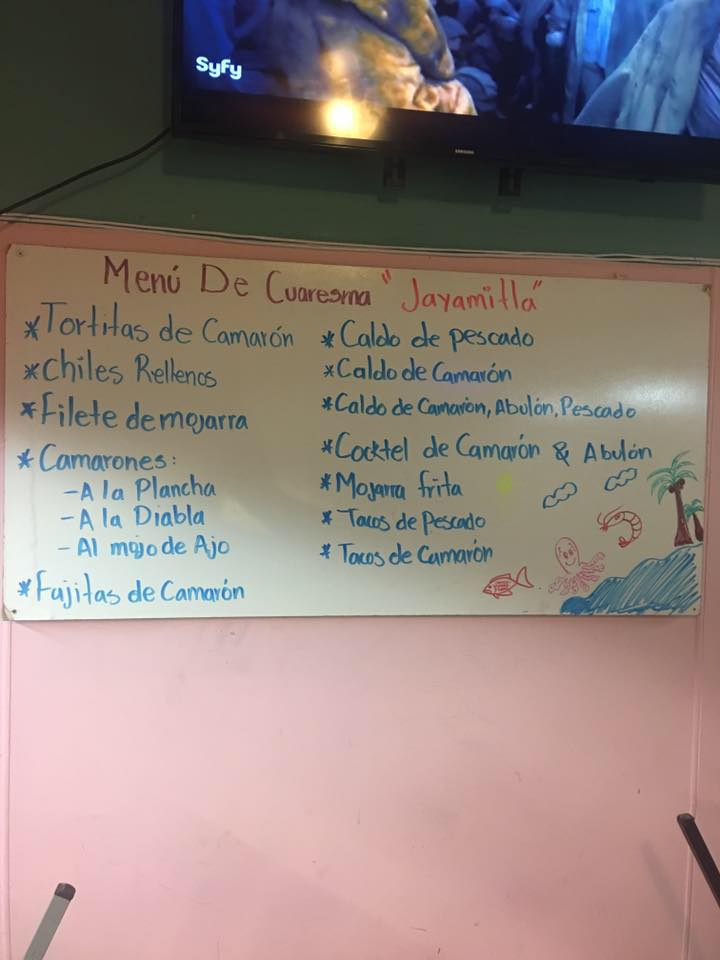 Syfy
SAMSUNG
Menú De Cuaresma "Jayamitla"
*Tortitas de Camarón
*Chiles Rellenos
*Filete de mojarra
*Camarones:
-A la Plancha
-A la Diabla
-Al mojo de Ajo
*Fajitas de Camarón
*Caldo de pescado
*Caldo de Camarón
*Caldo de Camarón, Abulón, Pescado
*Cocktel de Camarón & Abulón
*Mojarra frita
*Tacos de Pescado
*Tacos de Camarón